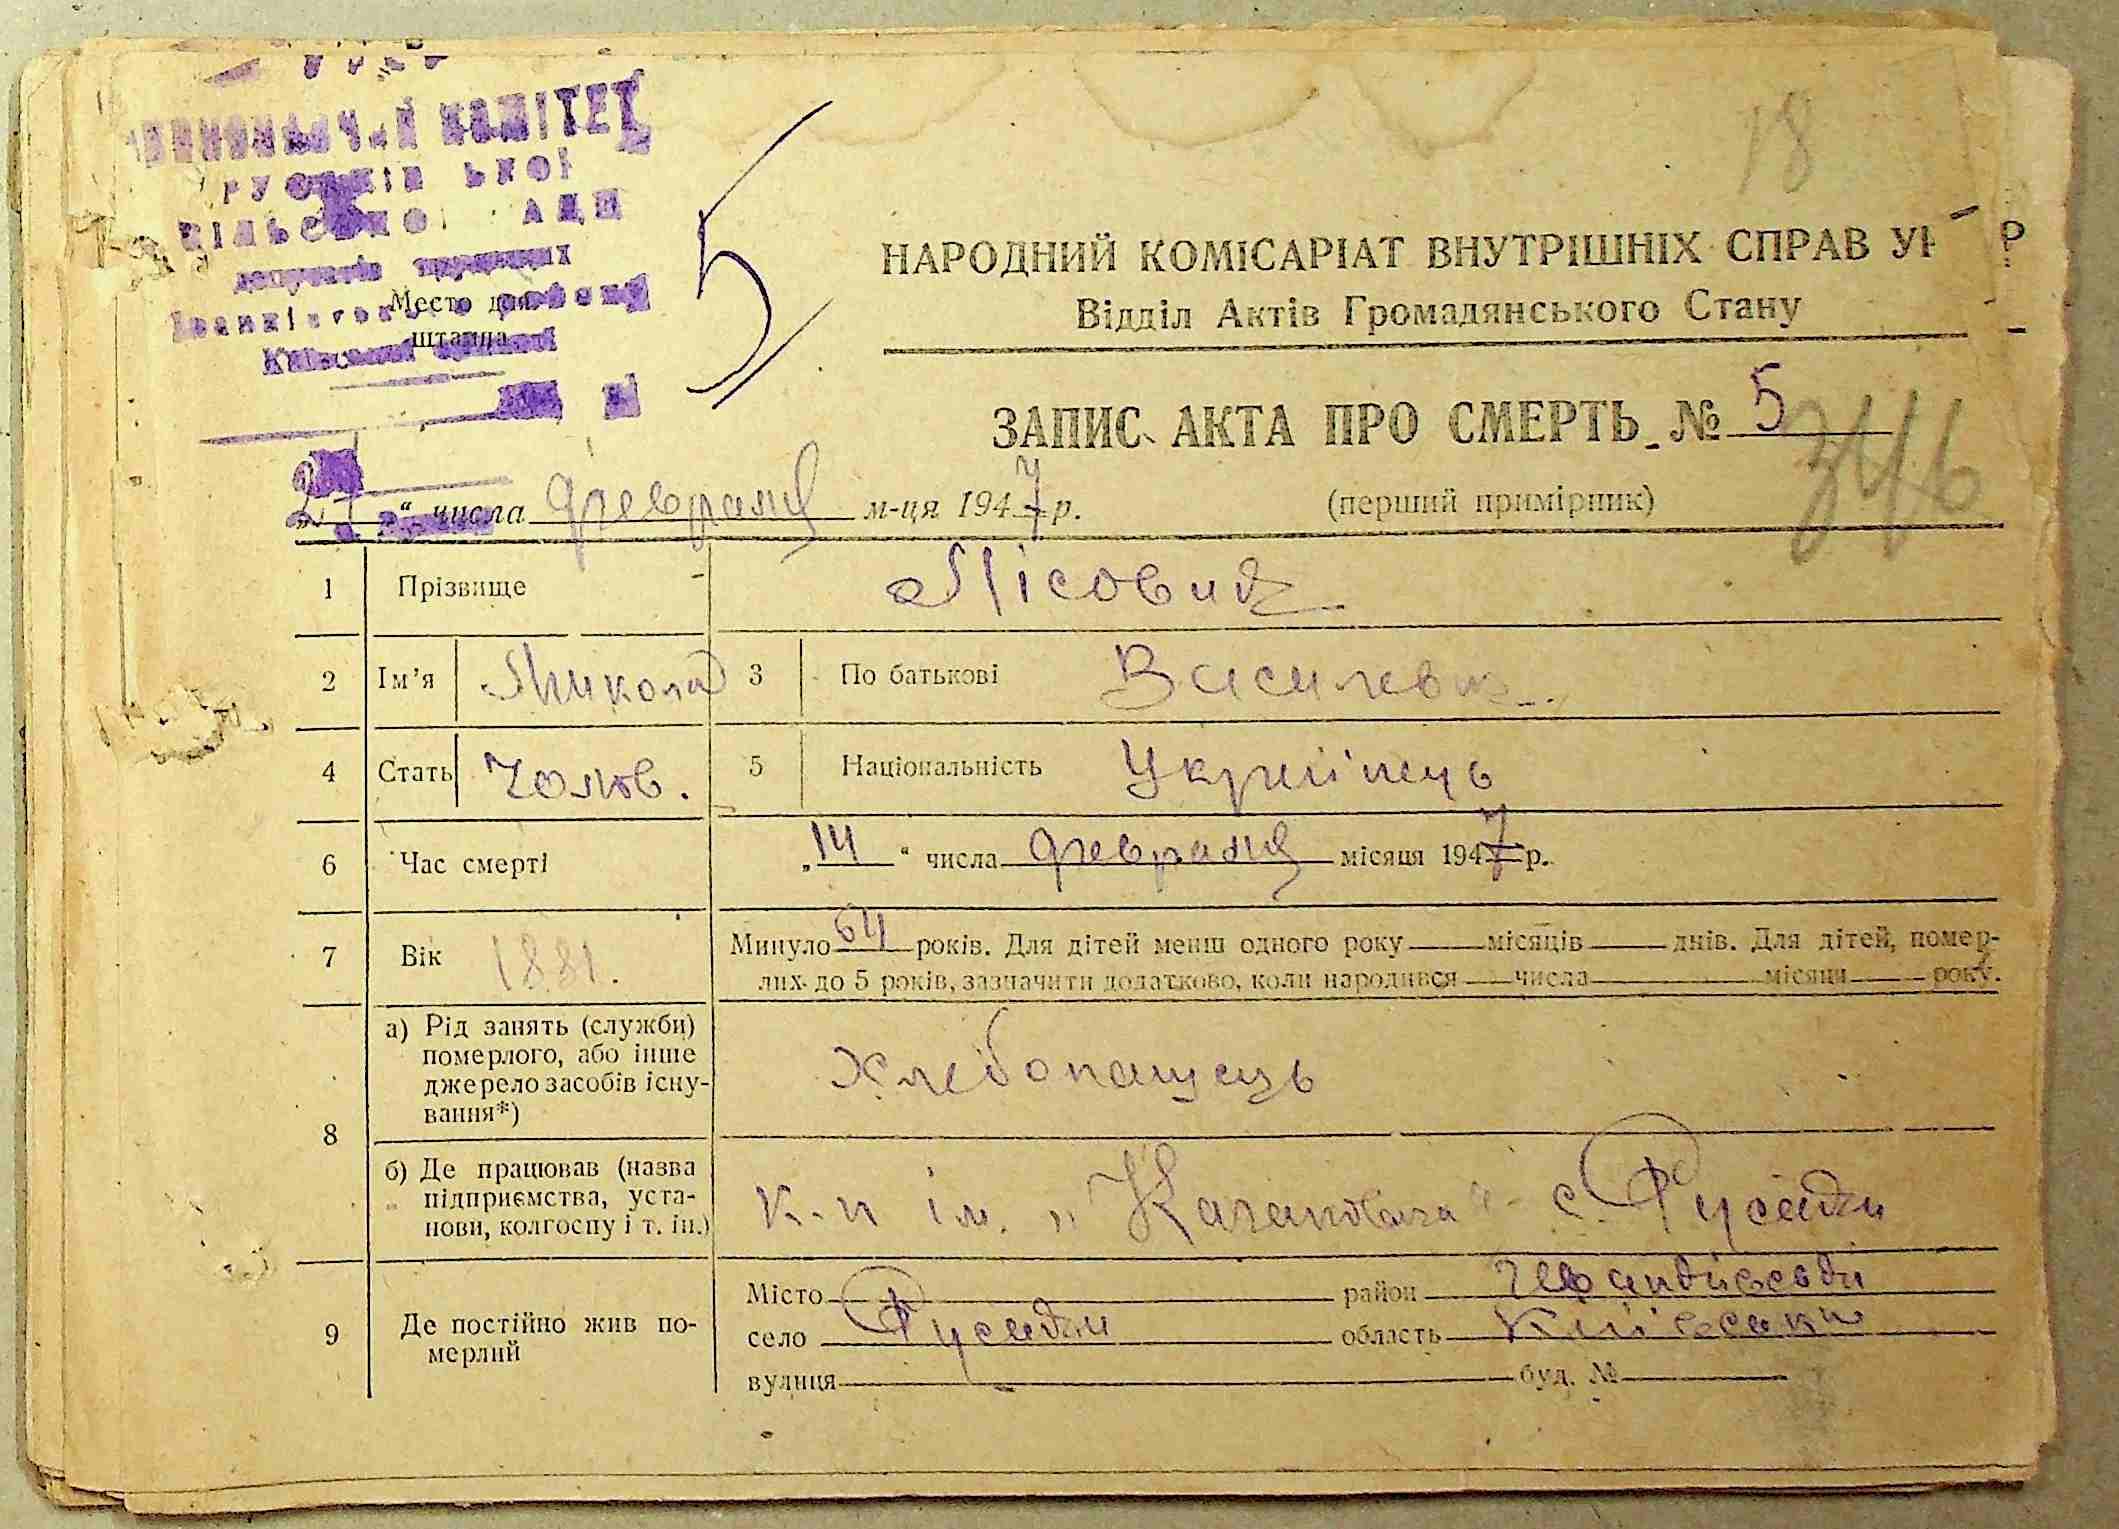 18
КОМІТЕТ
5
НАРОДНИЙ КОМІСАРІАТ ВНУТРІШНІХ СПРАВ
Відділ Актів Громадянського Стану
Место для
штампа
ЗАПИС АКТА ПРО СМЕРТЬ № 5
346
" числа февраля м-ця 1947 р. (перший примірник)
1 Прізвище Лісовий
2 Ім'я Микола 3 По батькові Василевич
4 Стать Чолов. 5 Національність Украйінець
6 Час смерті „14“ числа февраля місяця 1947 р.
7 Вік 1881. Минуло 64 років. Для дітей менш одного року місяців днів. Для дітей, помер-
лих до 5 років, зазначити додатково, коли народився числа місяця року.
8 а) Рід занять (служби)
померлого, або інше
джерело засобів існу-
вання*)
Хлебопашець
б) Де працював (назва
підприємства, уста-
нови, колгоспу і т. ін.)
к-п ім. „Кагановича“ с. Русаки
9 Де постійно жив по-
мерлий
Місто район
село Русаки область Київська
вулиця буд. №